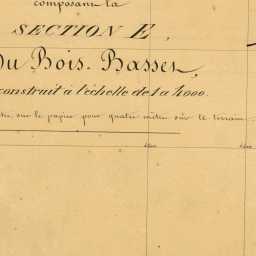 composant la
SECTION E,
Du Bois-Basset,
construit à l'échelle de 1 a 4000.
sur le papier pour quatre mètres sur le terrain.